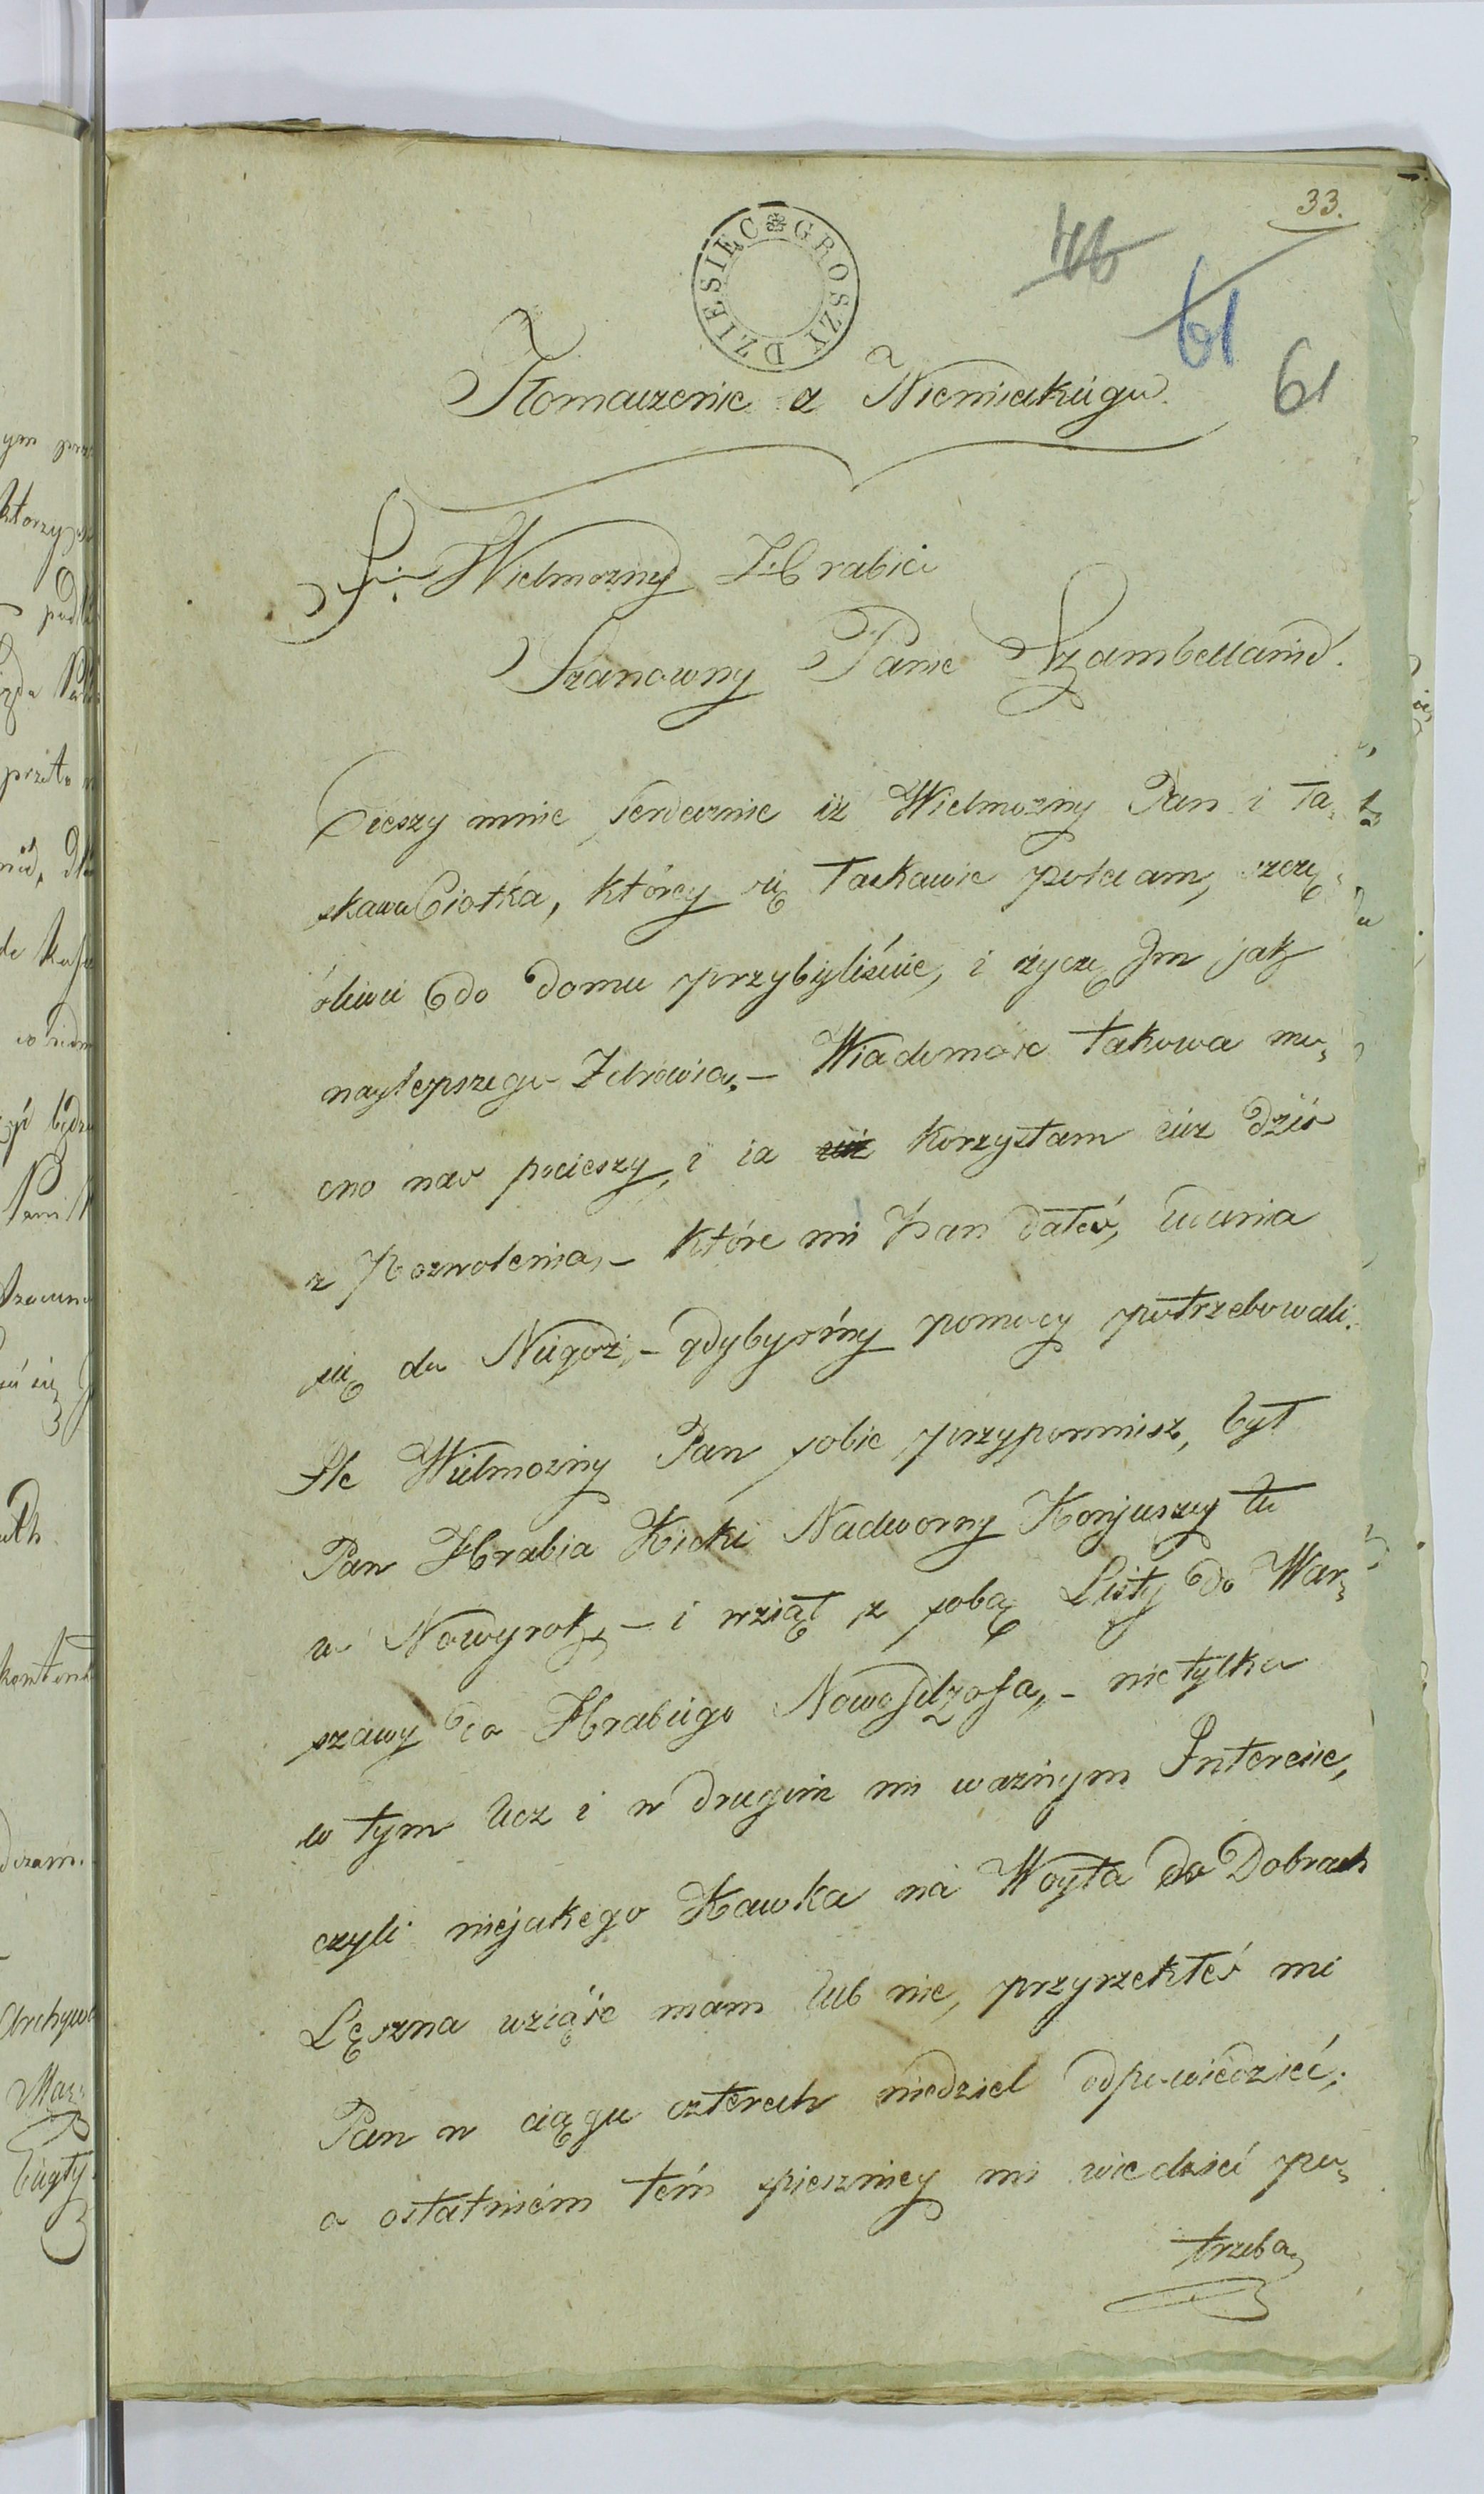 33.
46
61
61
DZIESIĘC GROSZY
Tłomaczenie z Niemieckiego
J: Wielmozny Hrabio
Szanowny Panie Szambellanie!
Cieszy mnie serdecznie iż Wielmożny Pan i Ła-
skawa Ciotka, którey się łaskawie polecam, szczę-
śliwie do domu przybyliście, i życzę Jm jak
naylepszego Zdrowia. – Wiadomość takowa mo-
cno nas pocieszy, i ia korzystam iuż dziś
z Pozwolenia, – które mi Pan dałeś, udania
się do Niegoż, – gdybyśmy pomocy potrzebowali.
Jle Wielmożny Pan sobie przypomnisz, był
Pan Hrabia Kicki Nadworny Konjuszy tu
w Nowyrok, – i wziął z sobą Listy do War-
szawy do Hrabiego Nowosilzofa, – nietylko
w tym lecz i w drugim mi ważnym Interesie,
czyli niejakego Kawka na Woyta do Dobrach
Lęszna wziąśc mam lub nie, przyrzekłeś mi
Pan w ciągu czterech niedziel odpowiedzieć;
o ostatniém tém spieszniey mi wiedzieć po-
trzeba